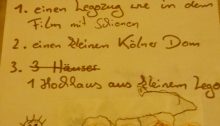 1. einen Legozug wie in dem
Film mit Schienen
2. einen kleinen Kölner Dom
3. 3 Häuser
1 Hochhaus aus kleinem Lego